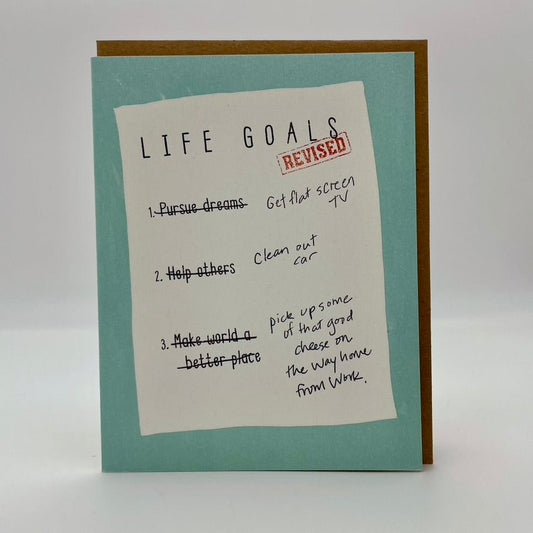 LIFE GOALS
REVISED
1. Pursue dreams
Get flat screen
TV
2. Help others
Clean out
car
3. Make world a
better place
pick up some
of that good
cheese on
the way home
from work.